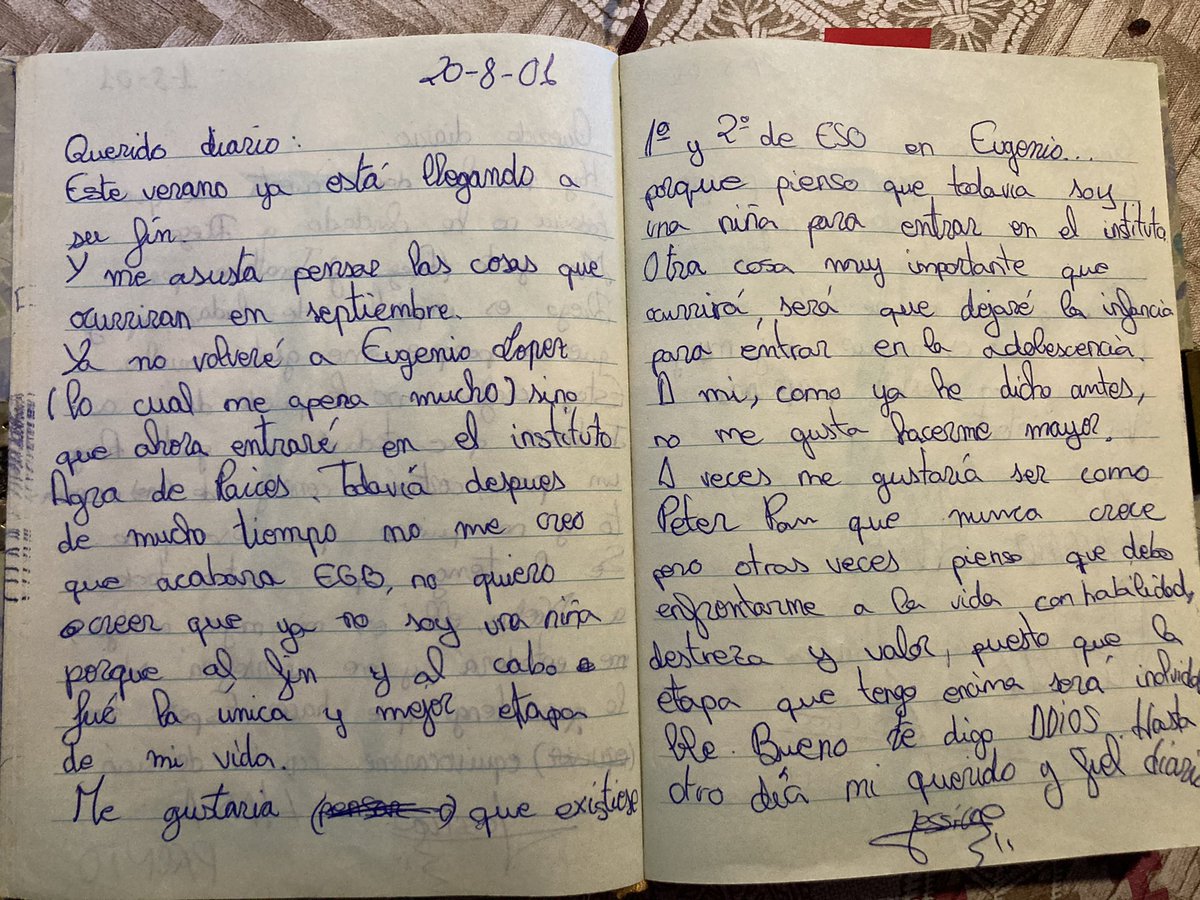 20-8-01
Querido diario:
Este verano ya está llegando a
su fin.
Y me asusta pensar las cosas que
ocurriran en septiembre.
Ya no volveré a Eugenio Lopez
(lo cual me apena mucho) sino
que ahora entraré en el instituto
Agra de Raices. Todaviá despues
de mucho tiempo no me creo
que acabara EGB, no quiero
creer que ya no soy una niña
porque al fin y al cabo
fué la única y mejor etapa
de mi vida.
Me gustaria que existiese
1º y 2º de ESO en Eugenio...
porque pienso que todavia soy
una niña para entrar en el instituto.
Otra cosa muy importante que
ocurrirá, será que dejaré la infancia
para éntrar en la adolescencia.
A mi, como ya he dicho antes,
no me gusta hacerme mayor.
A veces me gustariá ser como
Peter Pam que nunca crece
pero otras veces pienso que debo
enfrontarme a la vida con habilidad,
destreza y valor, puesto que la
etapa que tengo encima será inolvida
ble. Bueno te digo ADIOS. Hasta
otro diá mi querido y fiel diario
Jessica